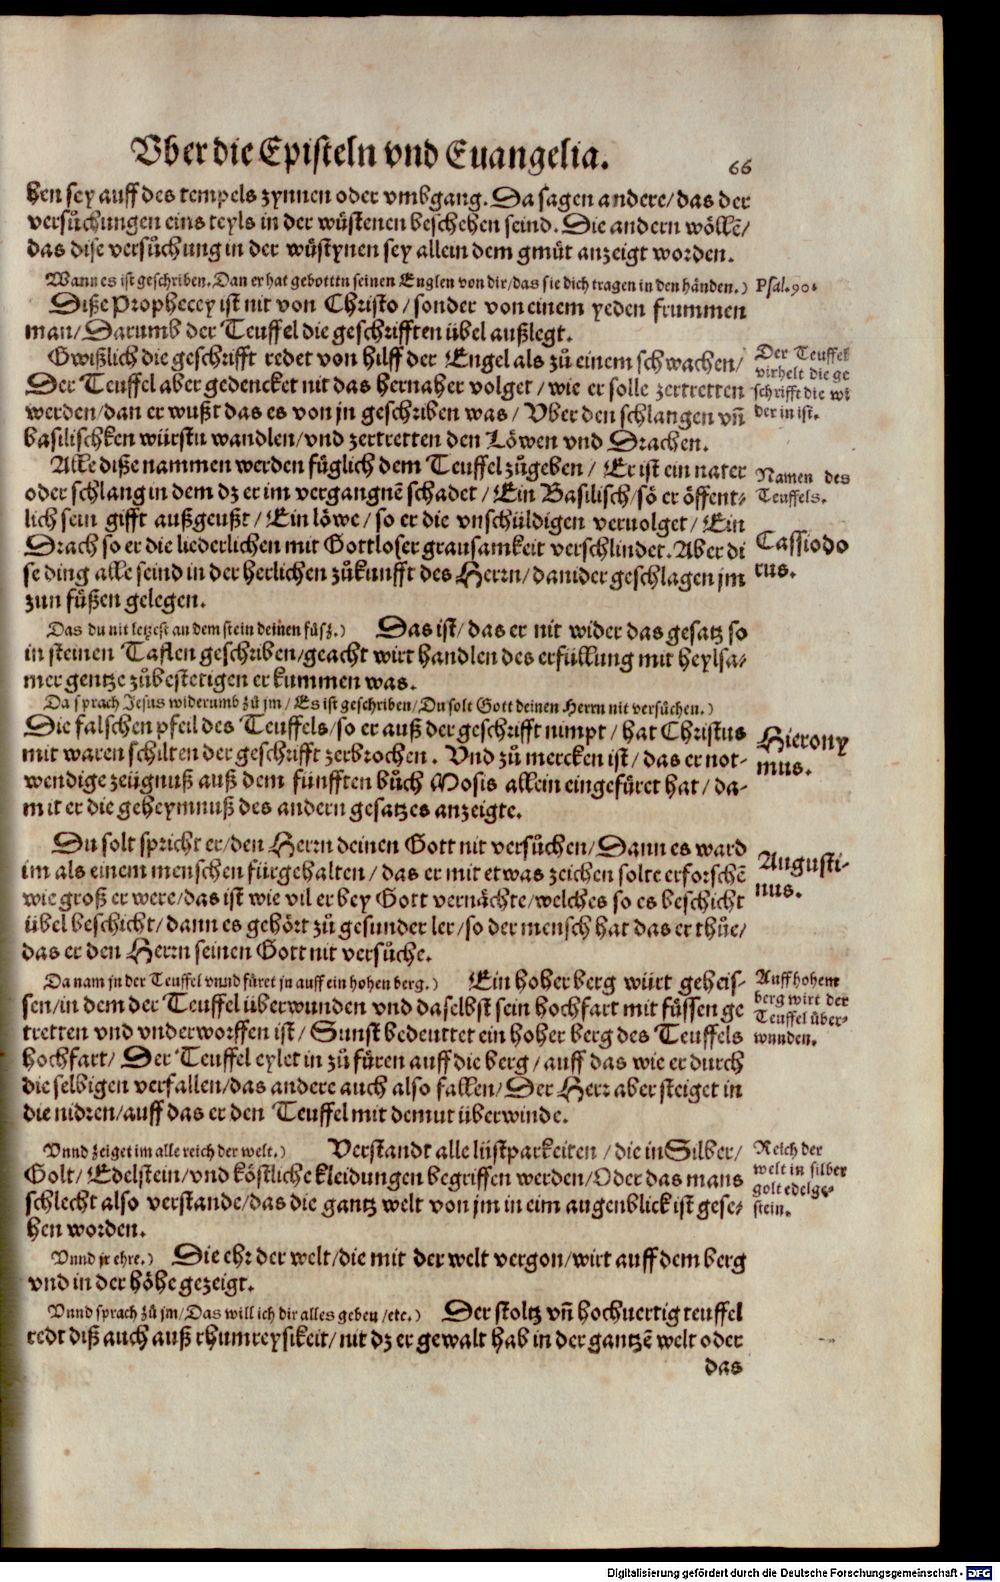 Vber die Episteln vnd Euangelia.
66
hen sey auff des tempels zynnen oder vmbgang. Da sagen andere/ das der
versůchungen eins teyls in der wüstenen beschehen seind. Die andern wöllē/
das dise versůchung in der wüstynen sey allein dem gmüt anzeigt worden.
Wann es ist geschriben. Dan er hat gebottn seinen Englen von dir/ das sie dich tragen in den händen.)
Psal. 90.
Diße Prophecey ist nit von Christo/ sonder von einem yeden frummen
man/ Darumb der Teuffel die geschrifften übel außlegt.
Gwißlich die geschrifft redet von hilff der Engel als zů einem schwachen/
Der Teuffel aber gedencket nit das hernaher volget/ wie er solle zertretten
werden/ dan er wußt das es von jn geschriben was/ Vber den schlangen vñ
basilischken würstu wandlen/ vnd zertretten den Löwen vnd Drachen.
Der Teuffel
virhelt die ge
schrifft die wi
der in ist.
Alle diße nammen werden füglich dem Teuffel zůgeben/ Er ist ein nater
oder schlang in dem dz er im vergangnē schadet/ Ein Basilisch/ sö er öffent-
lich sein gifft außgeußt/ Ein löwe/ so er die vnschüldigen veruolget/ Ein
Drach so er die liederlichen mit Gottloser grausamkeit verschlindet. Aber di
se ding alle seind in der herlichen zůkunfft des Herrn/ danider geschlagen jm
zun füßen gelegen.
Namen des
Teuffels.
Cassiodo
rus.
Das du nit letzest an dem stein deinen fůsz.) Das ist/ das er nit wider das gesatz so
in steinen Taflen geschriben/ geacht wirt handlen des erfüllung mit heylsa-
mer gentze zůbestetigen er kummen was.
Da sprach Jesus widerumb zů jm/ Es ist geschriben/ Du solt Gott deinen Herrn nit versůchen.)
Die falschen pfeil des Teuffels/ so er auß der geschrifft nimpt/ hat Christus
mit waren schilten der geschrifft zerbrochen. Vnd zů mercken ist/ das er not-
wendige zeügnuß auß dem fünfften bůch Mosis allein eingefüret hat/ da-
mit er die geheymnuß des andern gesatzes anzeigte.
Hierony
mus.
Du solt spricht er/ den Herrn deinen Gott nit versůchen/ Dann es ward
im als einem menschen fürgehalten/ das er mit etwas zeichen solte erforschē
wie groß er were/ das ist wie vil er bey Gott vernächte/ welches so es beschicht
übel beschicht/ dann es gehört zů gesunder ler/ so der mensch hat das er thůe/
das er den Herrn seinen Gott nit versůche.
Augusti-
nus.
Da nam jn der Teuffel vnnd füret jn auff ein hohen berg.) Ein hoher berg würt geheis-
sen/ in dem der Teuffel überwunden vnd daselbst sein hochfart mit füssen ge
tretten vnd vnderworffen ist/ Sunst bedeuttet ein hoher berg des Teuffels
hochfart/ Der Teuffel eylet in zů füren auff die berg/ auff das wie er durch
die selbigen verfallen/ das andere auch also fallen/ Der Herr aber steiget in
die nidren/ auff das er den Teuffel mit demut überwinde.
Auff hohem
berg wirt der
Teuffel über-
wunden.
Vnnd zeiget im alle reich der welt.) Verstandt alle lüstparkeiten/ die in Silber/
Golt/ Edelstein/ vnd köstliche kleidungen begriffen werden/ Oder das mans
schlecht also verstande/ das die gantz welt von jm in eim augenblick ist gese-
hen worden.
Reich der
welt in silber
golt edelge-
stein.
Vnnd jr ehre.) Die ehr der welt/ die mit der welt vergon/ wirt auff dem berg
vnd in der höhe gezeigt.
Vnnd sprach zů jm/ Das will ich dir alles geben/ etc.) Der stoltz vñ hochuertig teuffel
redt diß auch auß rhumreysikeit/ nit dz er gewalt hab in der gantzē welt oder
das
Digitalisierung gefördert durch die Deutsche Forschungsgemeinschaft - DFG